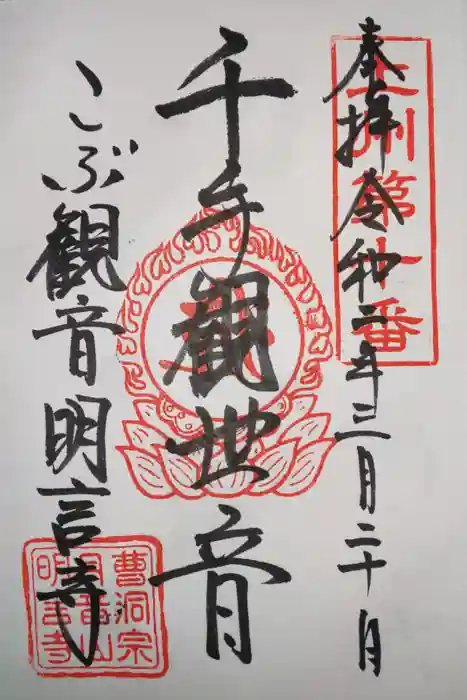 奉拝 令和二年三月二十日
上州第十番
千手観世音
こぶ観音 明言寺
曹洞宗
明言寺